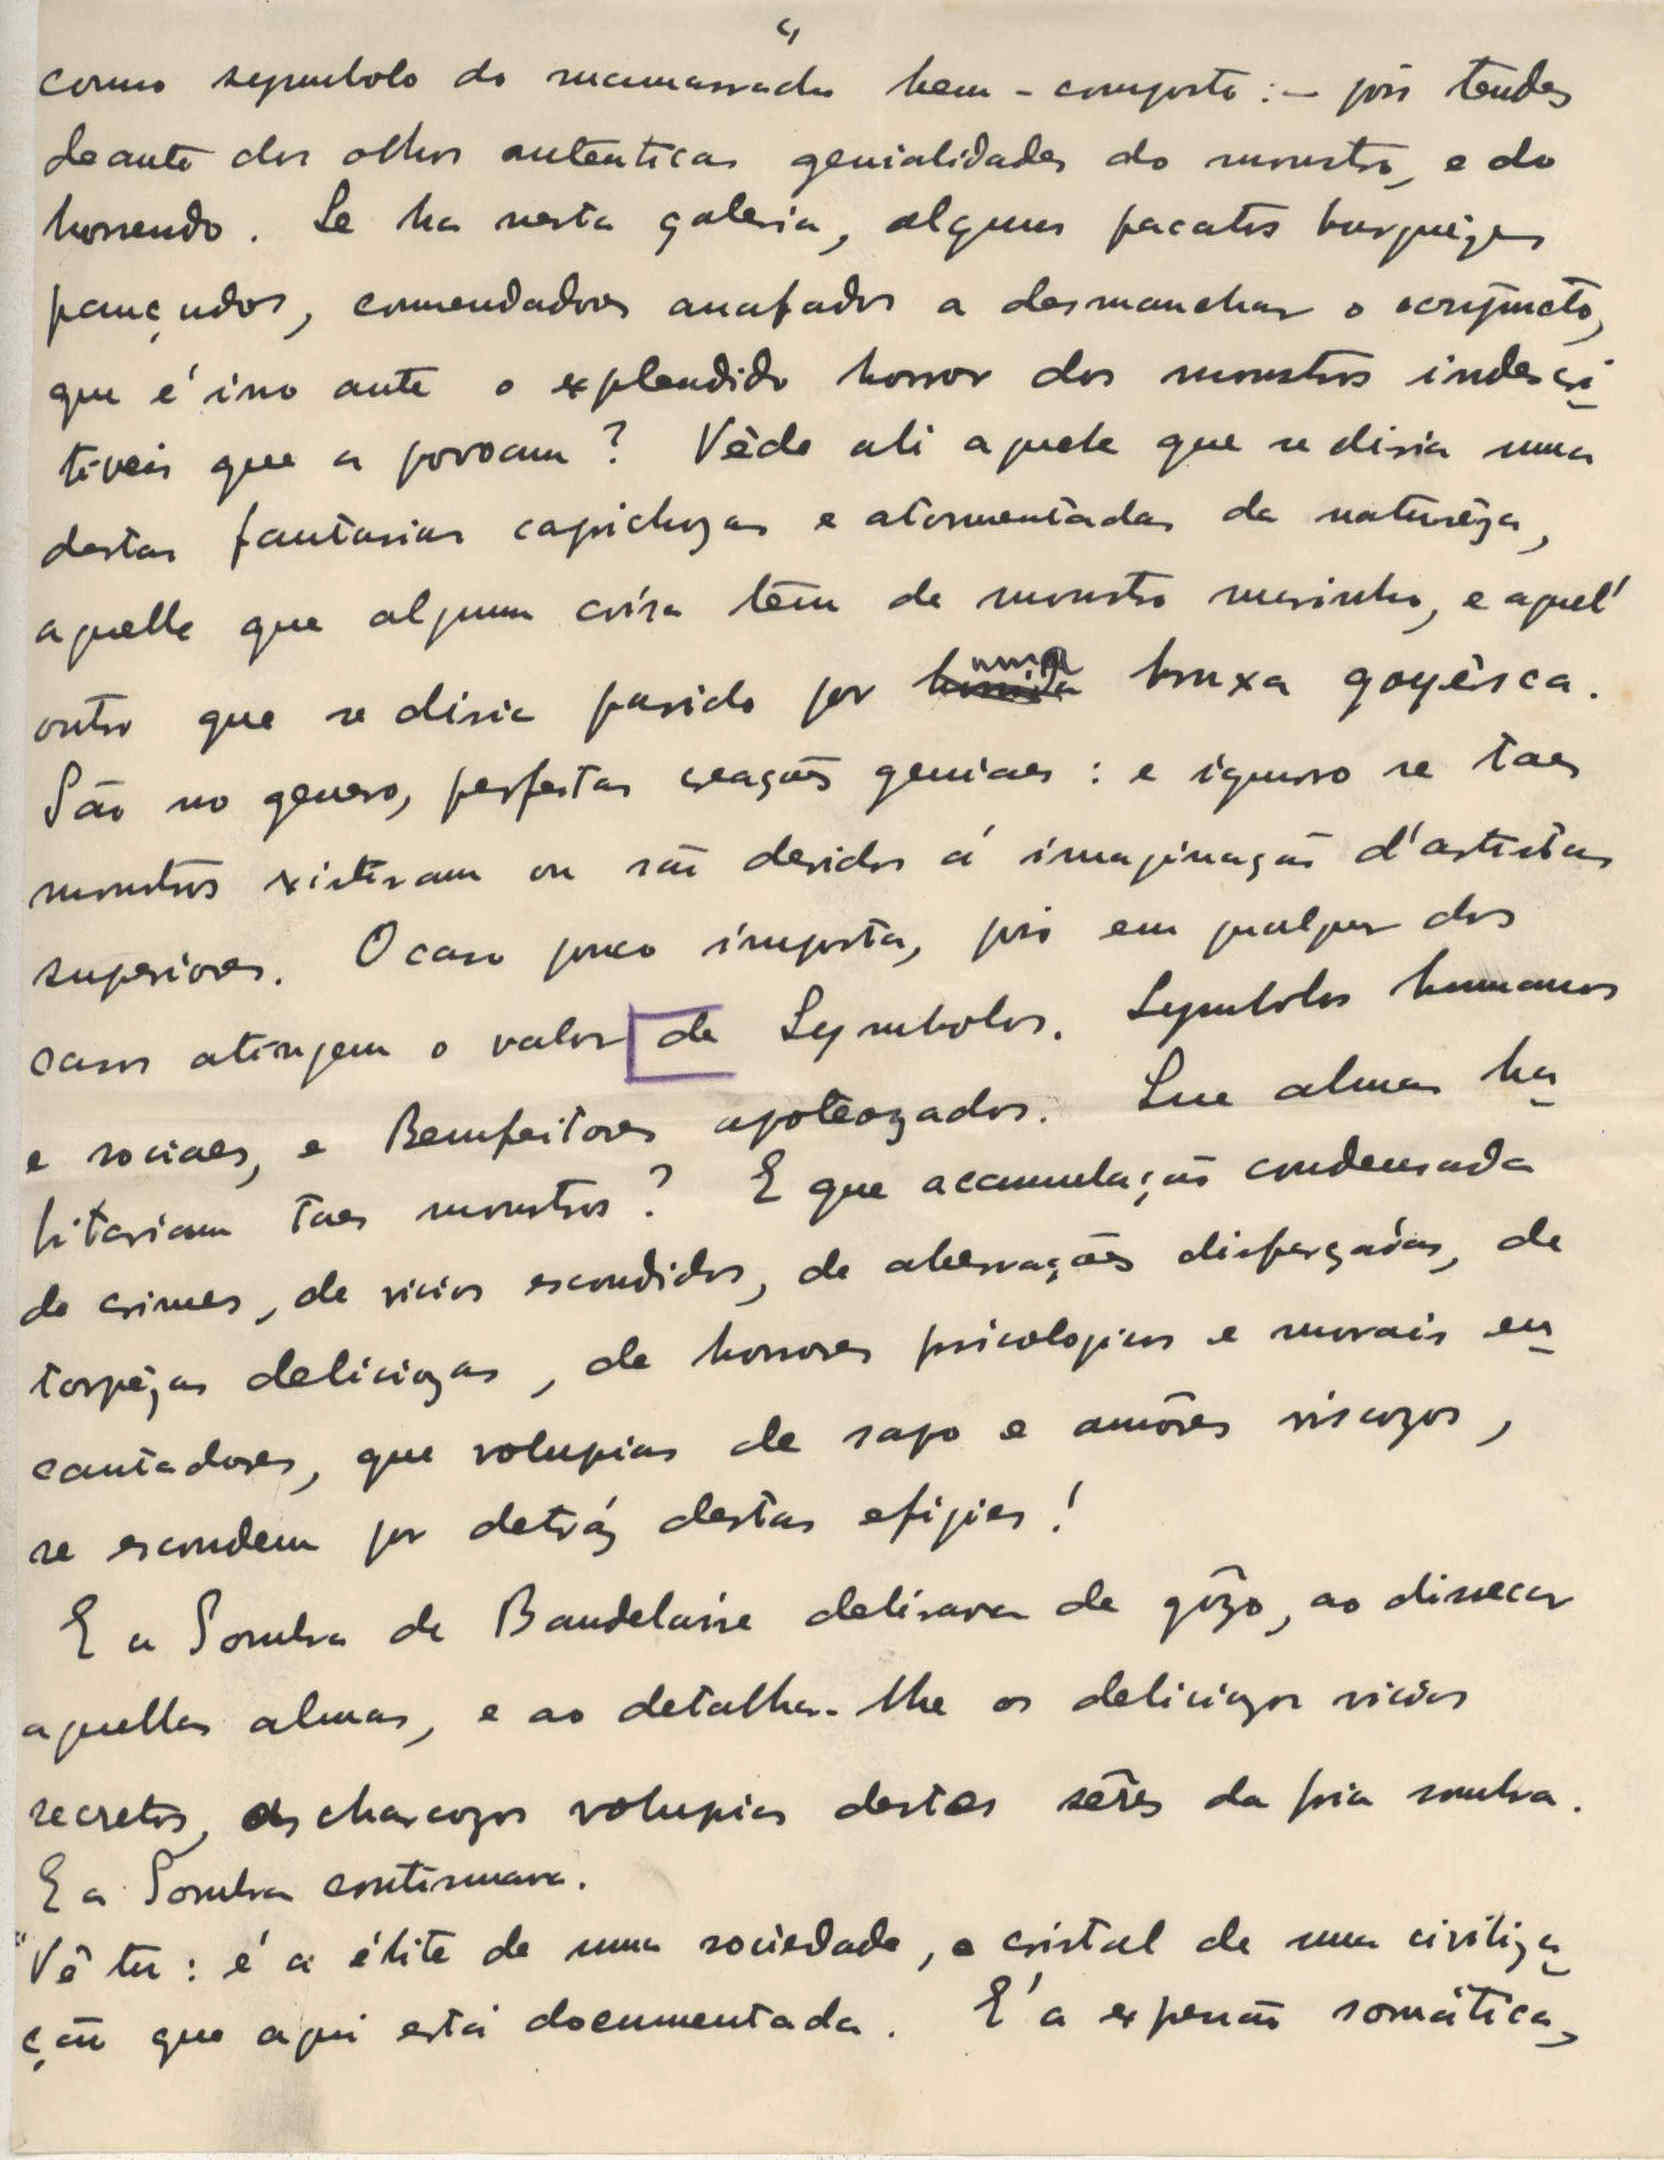 como symbolo do mamarracho bem-composto:— pois tendes
deante dos olhos autenticas genialidades do monstro, e do
horrendo. Se ha nesta galeria, alguns pacatos burguizes
pançudos, comendadores anafados a desmanchar o conjuncto,
que é isso ante o explendido horror dos monstros indescri
tiveis que a povoam? Vêde ali aquele que se disia uma
destas fantasias caprichozas e atormentadas da naturêza,
aquelle que alguma coisa têm de monstro marinho, e aquel'
outro que se disia parido por uma bruxa goyêsca.
São no genero, perfeitas creações geniaes: e ignoro se taes
monstros existiram ou são devidos á imaginação d'artistas
superiores. O caso pouco importa, pois em qualquer dos
casos atingem o valor de Symbolos. Symbolos humanos
e sociaes, e Bemfeitores apoteozados. Que almas ha
bitariam taes monstros? E que acumulação condensada
de crimes, de vicios escondidos, de aberrações disfarçadas, de
torpêzas deliciozas, de horrores psicologicos e morais en
cantadores, que volupias de sapo e amôres viscozos,
se escondem por detráz destas efigies!
E a Sombra de Baudelaire delirava de gôzo, ao dissecar
aquellas almas, e ao detalhar-lhe os deliciozos vicios
secretos, as charcozas volupias destes sêres da fria sombra.
E a Sombra continuava.
"Vê tu: é a élite de uma sociedade, o cristal de uma civiliza
ção que aqui está documentada. E' a expressão somática,